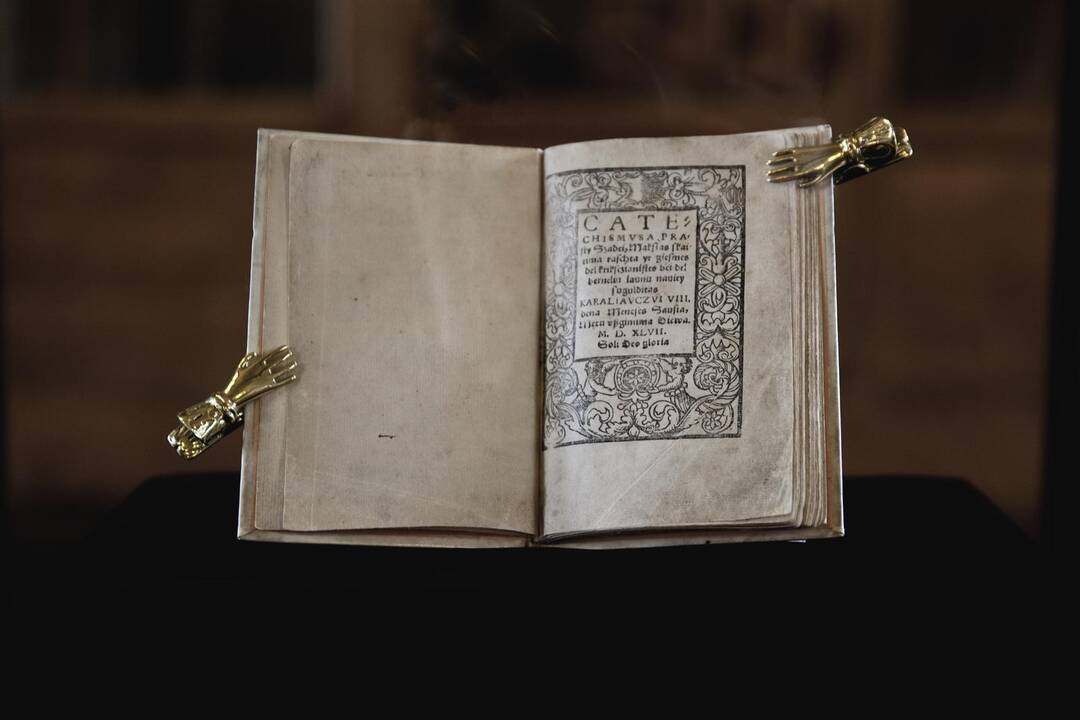 CATE⸗
CHISMVSA PRA⸗
sty Szadei, Makslas skai⸗
tima raschta yr giesmes
del krikszcianistes bei del
berneliu iaunu nauiey
sugulditas
KARALIAVCZVI VIII.
dena Meneses Sausia,
Metu vßgimima Diewa.
M. D. XLVII.
Soli Deo gloria